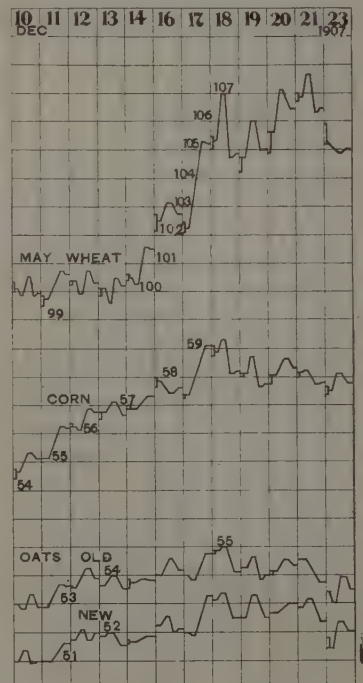 10 11 12 13 14 16 17 18 19 20 21 23
DEC 1907
107
106
105
104
103
102
MAY WHEAT 101
100
99
59
58
CORN 57
56
55
54
55
OATS OLD 54
53
NEW 52
51